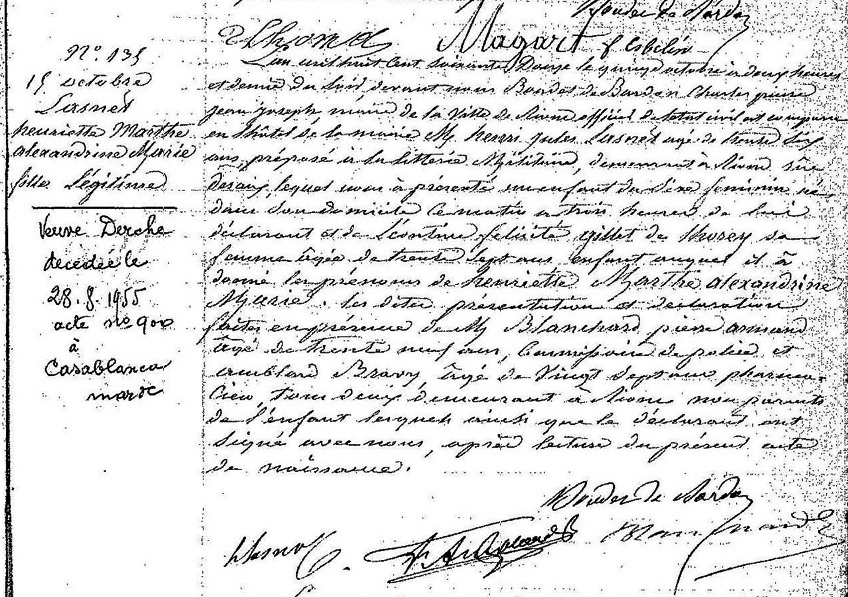 Boudet de Bardon
Thomas Magart f Esbelin
N° 135
15 octobre
Lasnet
henriette Marthe
alexandrine Marie
fille Légitime
Veuve Derche
décédée le
28.8.1955
acte n° 900
à
Casablanca
maroc
L'an mil huit cent soixante Douze le quinze octobre à deux heures
et demie du soir, devant nous Boudet de Bardon Charles pierre
jean joseph, maire de la Ville de Riom officier de l'état civil est comparu
en l'hôtel de la mairie M. henri jules Lasnet agé de trente six
ans, préposé à la litterie Militaire, demeurant à Riom rue
desaix, lequel nous à présenté un enfant du sexe feminin né
dans son domicile ce matin à trois heures de lui
déclarant et de Léontine felicité gillet de thorey sa
femme agée de trente sept ans enfant auquel il à
donné les prénoms de henriette Marthe alexandrine
Marie. les dites présentation et déclaration
faites en présence de M Blanchard pierre armand
agé de trente neuf ans, Commissaire de police et
amblard Bravy, agé de Vingt sept ans pharma-
cien, tous deux demeurant à Riom non parents
de l'enfant lesquels ainsi que le déclarant ont
signé avec nous, après lecture du présent acte
de naissance.
Boudet de Bardon
hLasnet